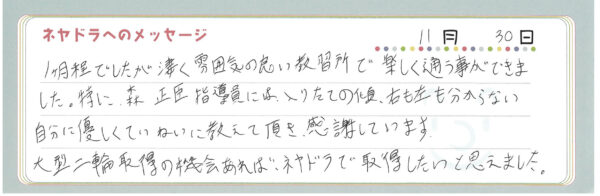 ネヤドラへのメッセージ 11月 30日
1ヶ月程でしたが凄く雰囲気の良い教習所で楽しく通う事ができま
した。特に、森 正臣 指導員には、入りたての頃、右も左も分からない
自分に優しくていねいに教えて頂き、感謝しています。
大型二輪取得の機会あれば、ネヤドラで取得したいと思えました。